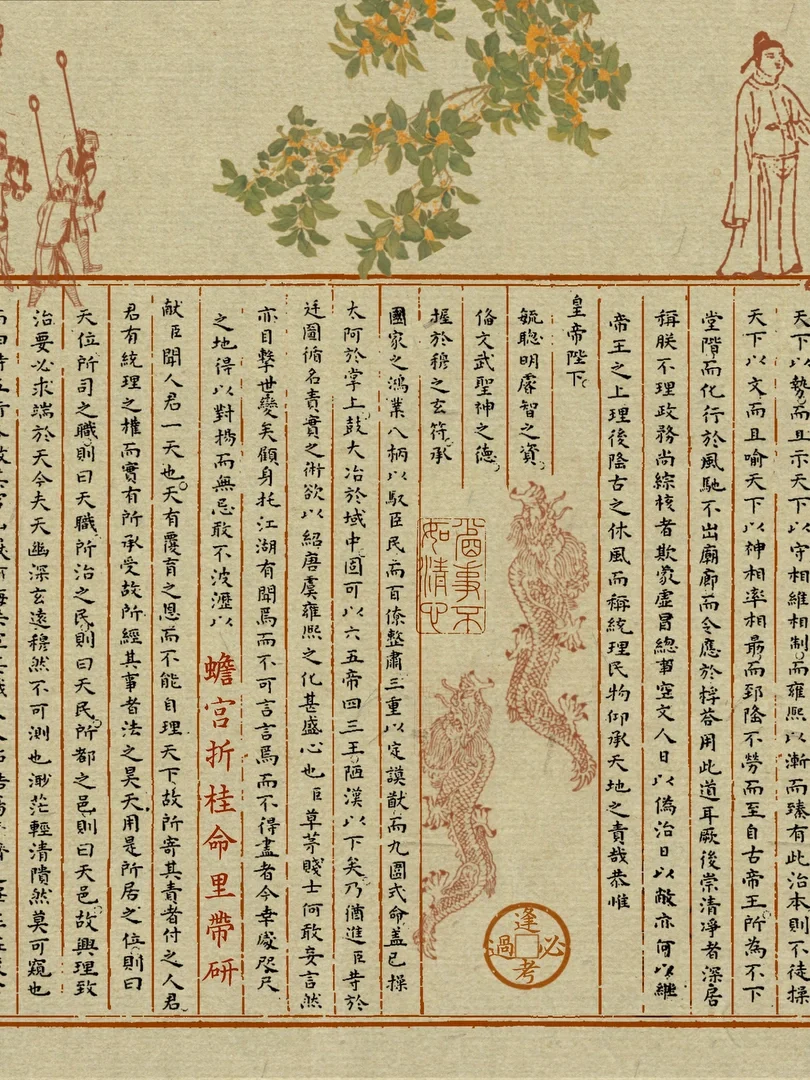 天下以勢而且示天下以守相維相制而雍熙以漸而臻有此治本則不徒操
天下以文而且喻天下以神相率相勗而郅隆不勞而至自古帝王所為不下
堂階而化行於風馳不出廟廊而令應於桴荅用此道耳厥後崇清凈者深居
稱朕不理政務尚綜核者欺蒙虛冒總事空文人日以偽治日以敝亦何以繼
帝王之上理後隆古之休風而稱統理民物仰承天地之責哉恭惟
皇帝陛下
毓聰明睿智之資
備文武聖神之德
握於穆之玄符承
國家之鴻業八柄以馭臣民而百僚整肅三重以定謨猷而九圍式命蓋已操
太阿於掌上鼓大冶於域中固可以六五帝四三王陋漢以下矣乃猶進臣等於
廷圖循名責實之術欲以紹唐虞雍熙之化甚盛心也臣草茅賤士何敢妄言然
亦目擊世變矣顧身托江湖有聞焉而不可言言焉而不得盡者今幸處咫尺
之地得以對揚而無忌敢不披瀝以
蟾宮折桂命里帶研
獻臣聞人君一天也天有覆育之恩而不能自理天下故所寄其責者付之人君
君有統理之權而實有所承受故所經其事者法之昊天用是所居之位則曰
天位所司之職則曰天職所治之民則曰天民所都之邑則曰天邑故興理致
治要必求端於天今夫天幽深玄遠穆然不可測也渺茫輕清隤然莫可窺也
逢考必過